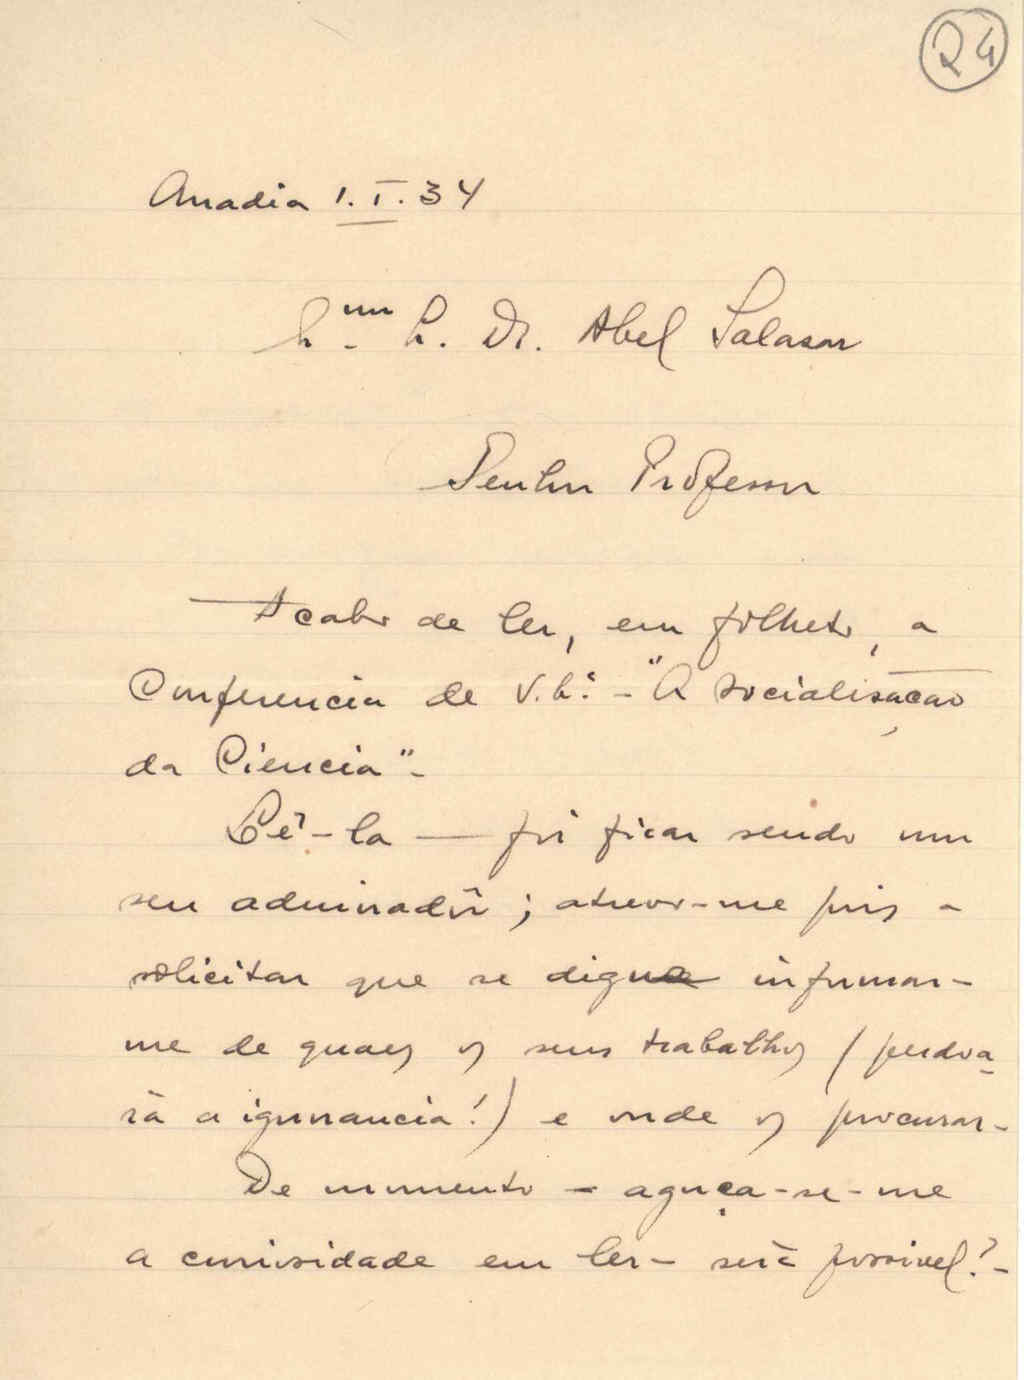 24
Anadia 1.I.34
Dr. Abel Salasar
Senhor Professor
Acabo de ler, em folheto, a
Conferencia de V. - "A socialisação
da Ciencia" -
Lê-la — foi ficar sendo um
seu admirador; atrevo-me pois a
solicitar que se digne informar-
me de quaes os seus trabalhos (perdoa-
rá a ignorancia!) e onde os procurar -
De momento - aguça-se-me
a curiosidade em ler - será possivel? -